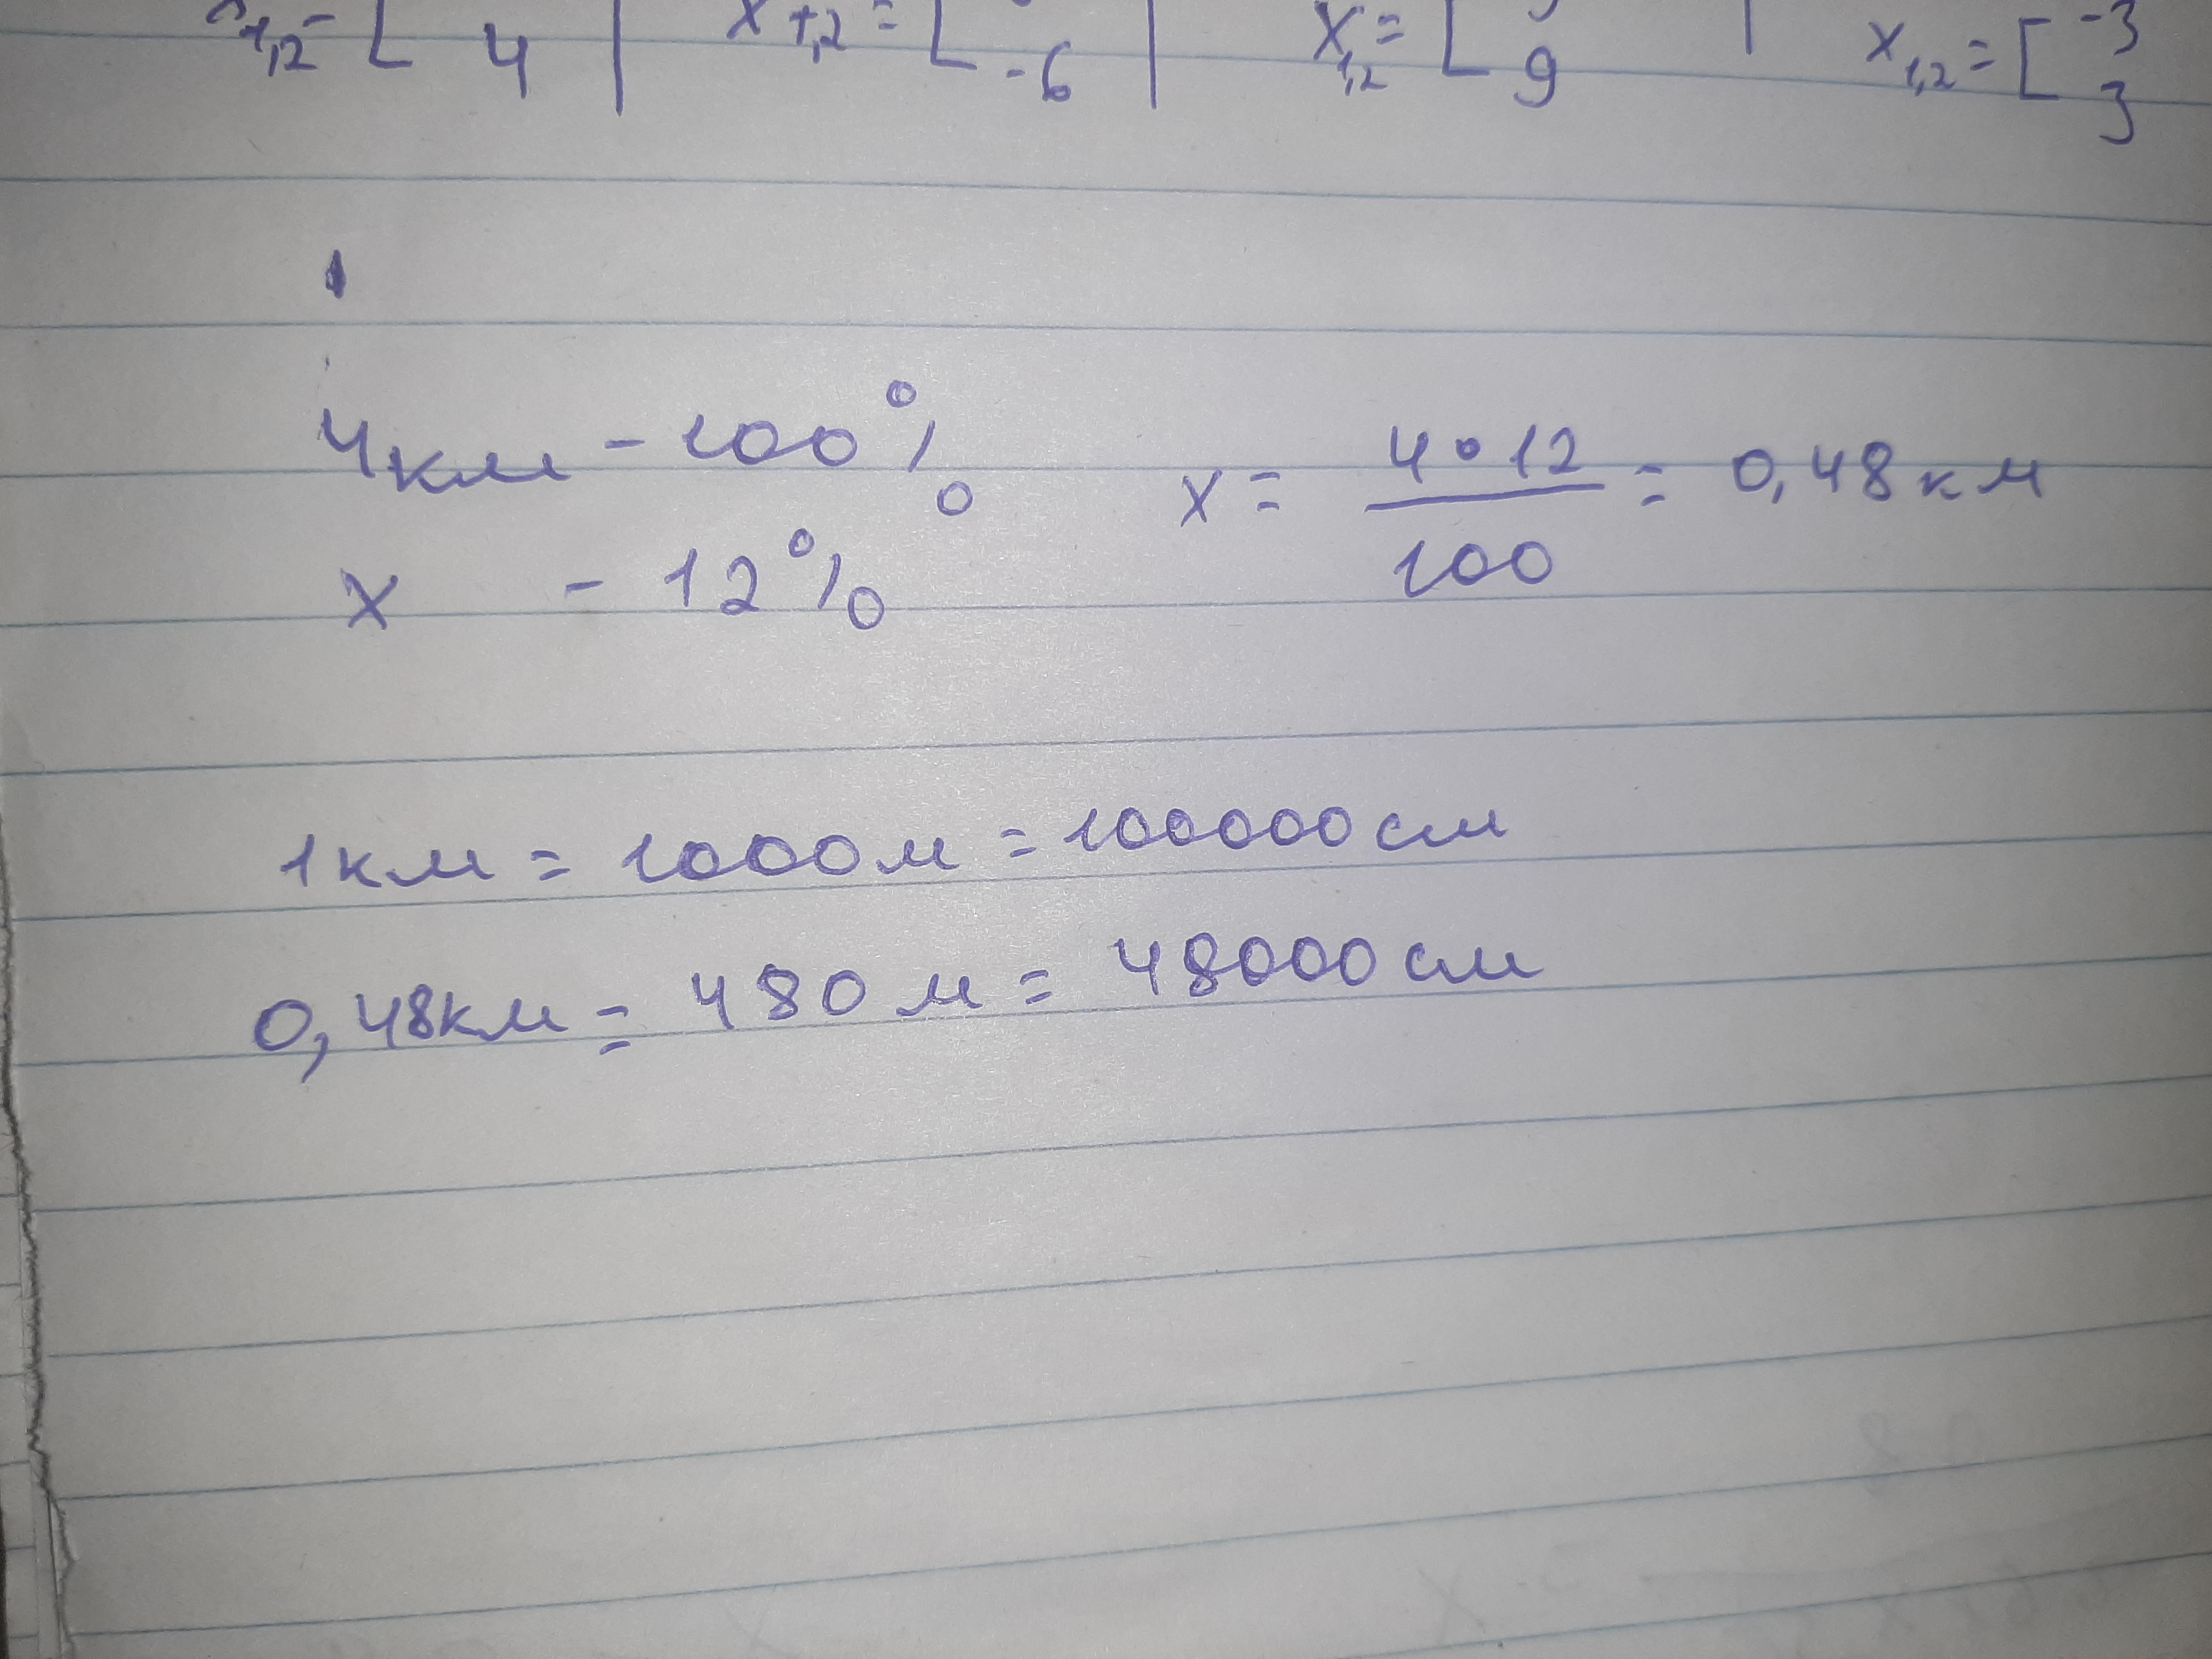 x₁,₂ = [ 4 | x₁,₂ = [ -6 | x₁,₂ = [ 9 | x₁,₂ = [ -3
3
4км - 100% x = 4•12/100 = 0,48км
x - 12%
1км = 1000м = 100000см
0,48км = 480м = 48000см